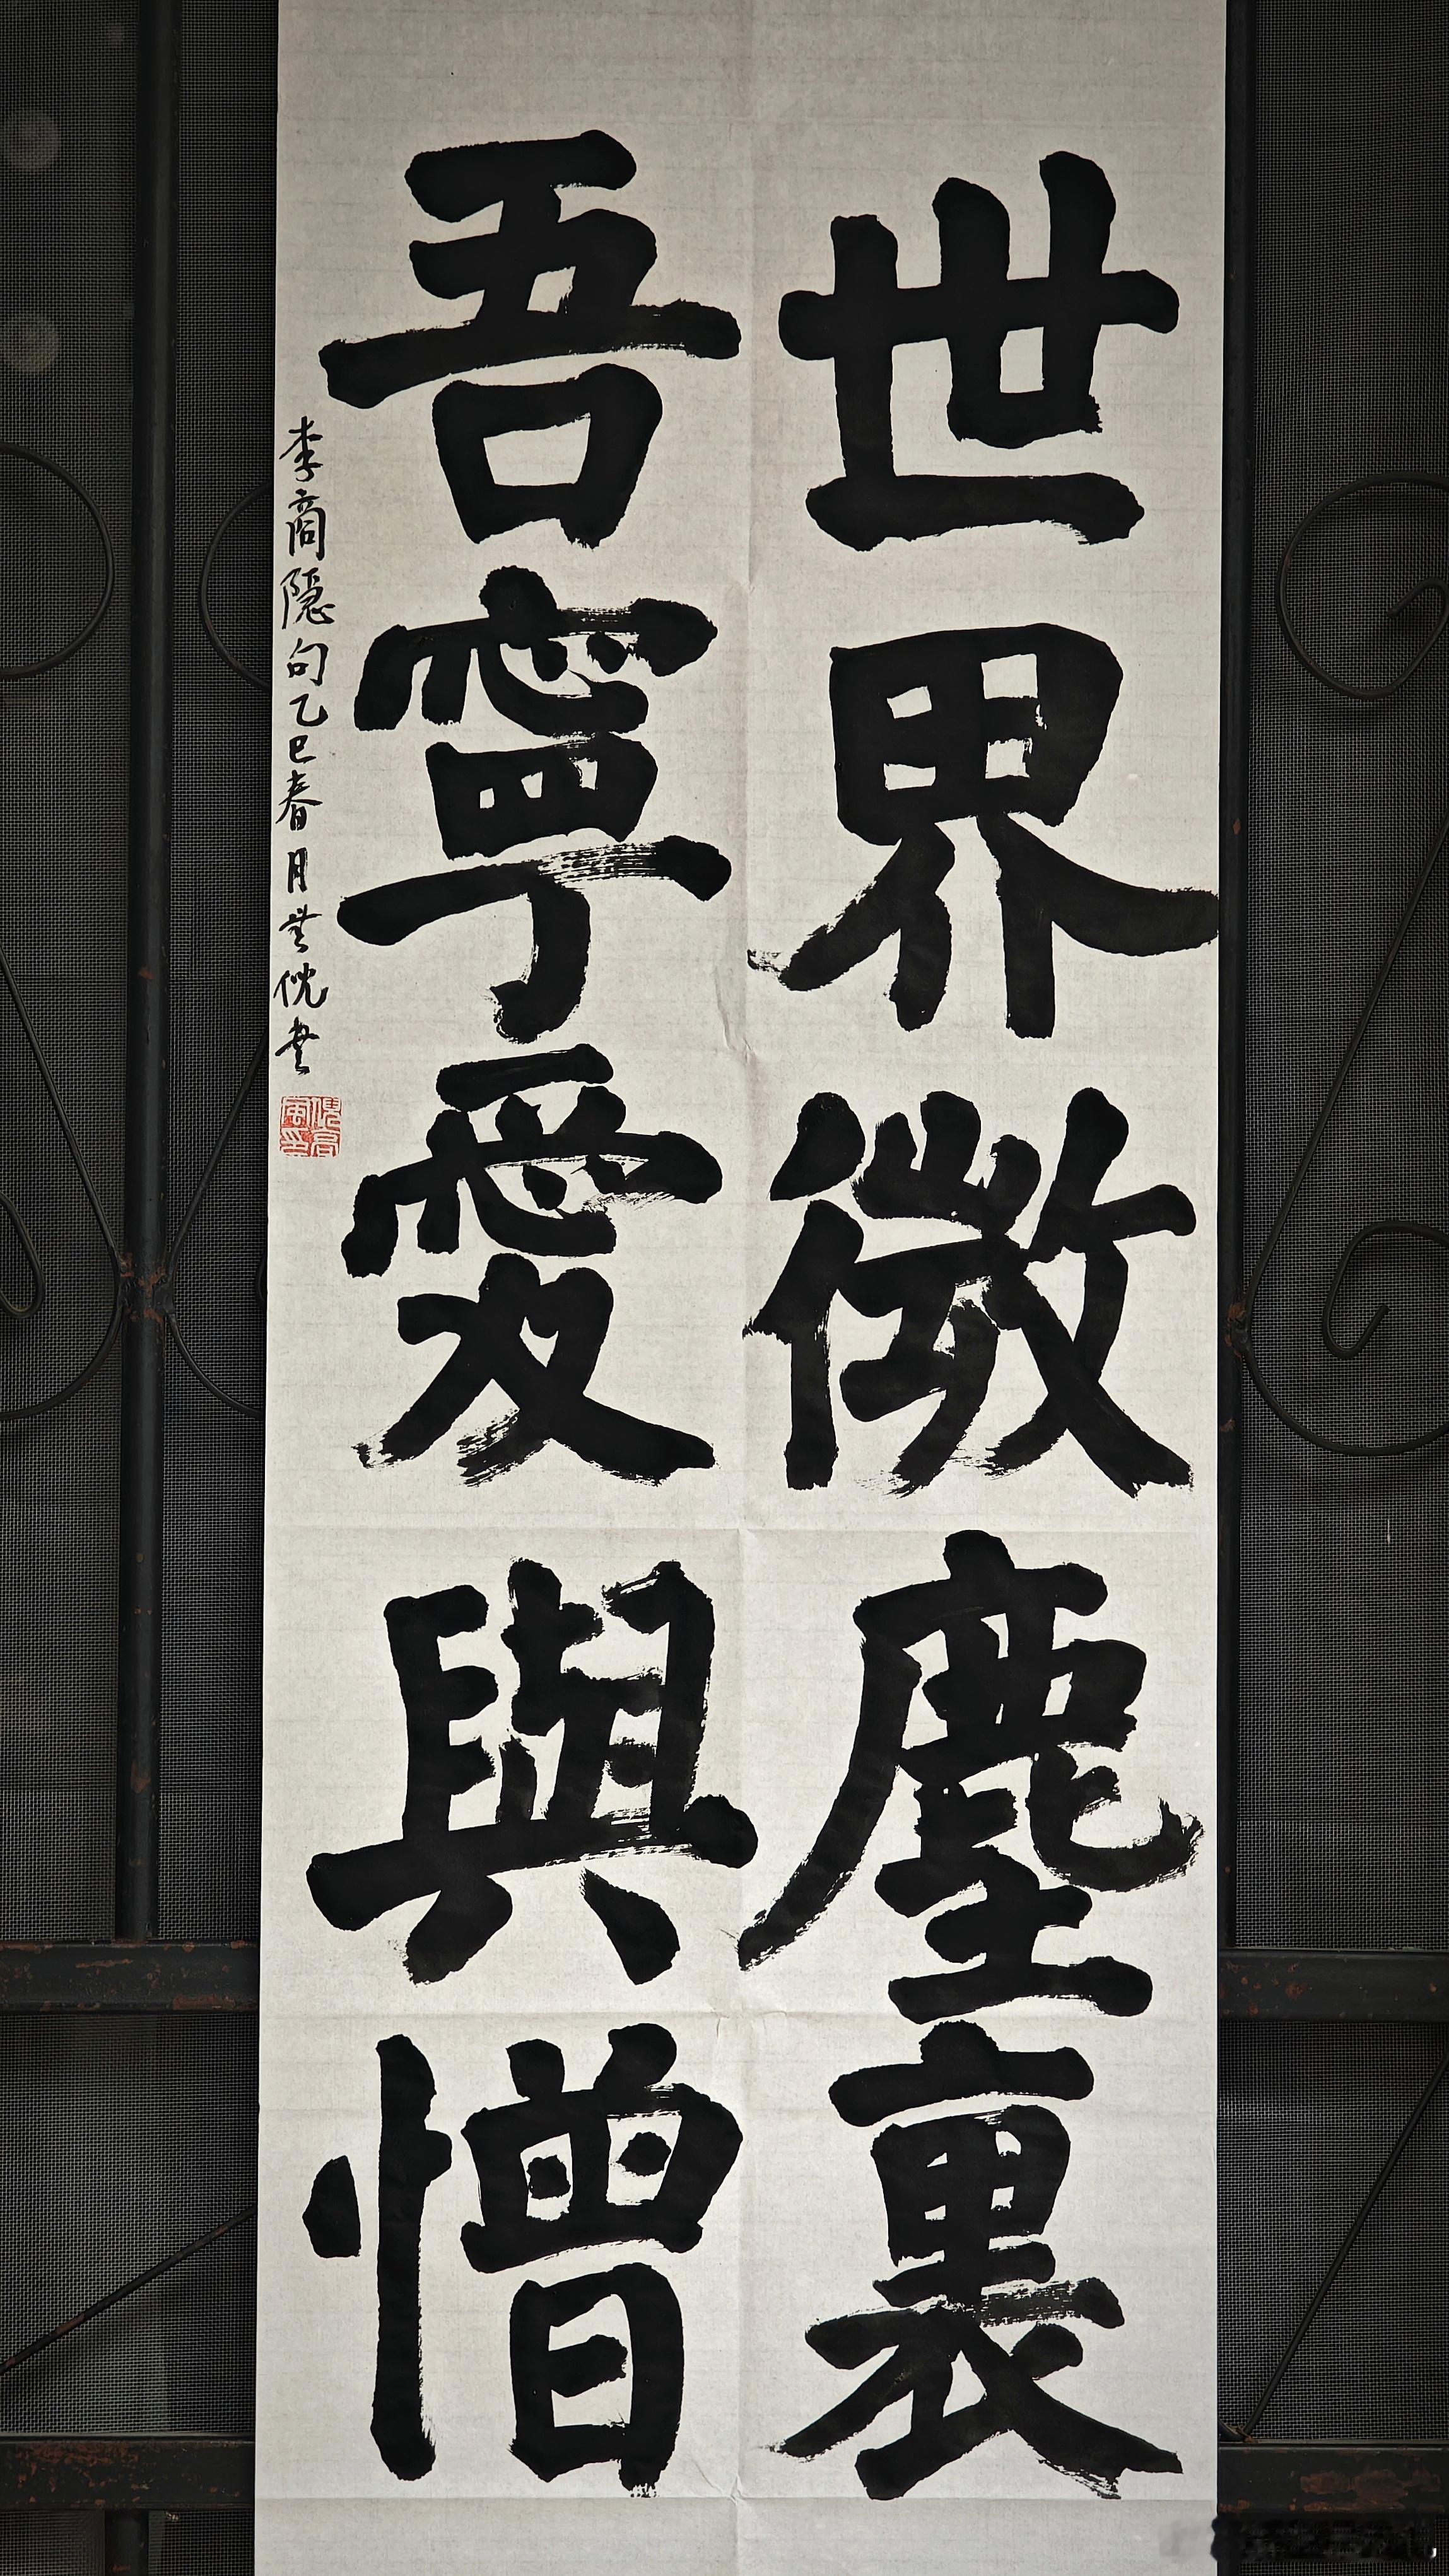 世界微塵裏
吾寧愛與憎
李商隱句乙巳春月